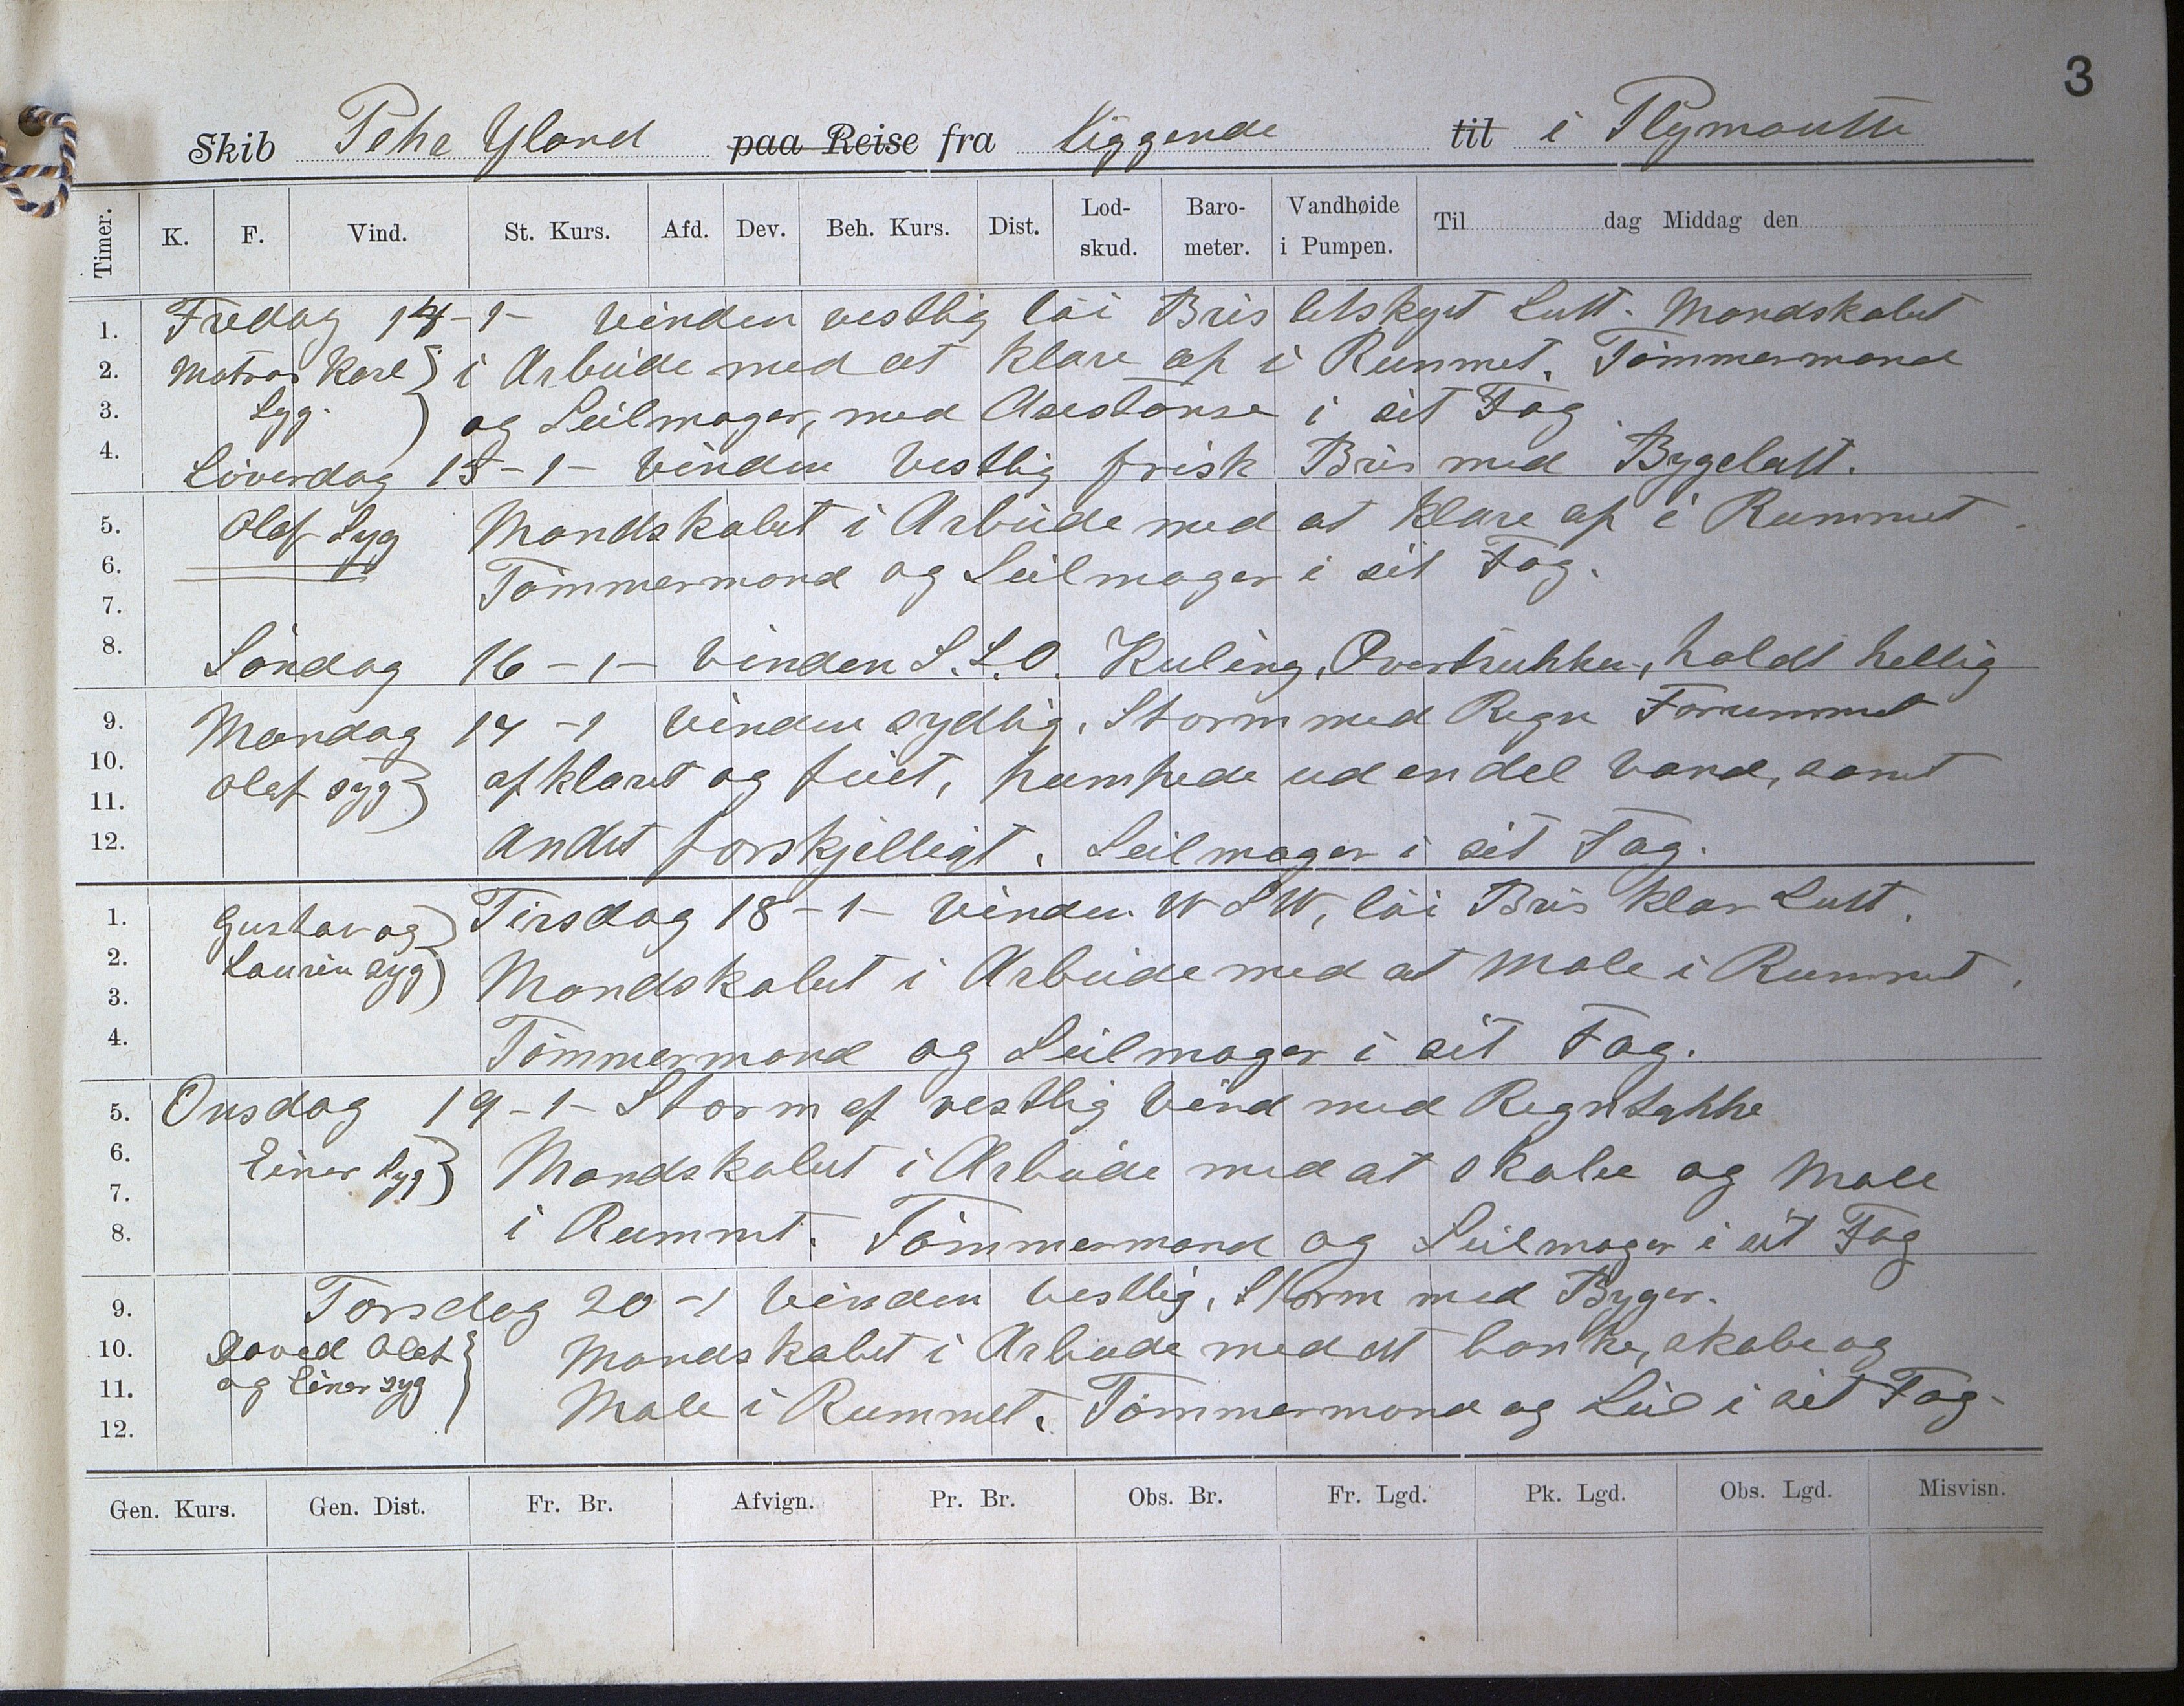 3
Skib Pehr Ugland paa Reise fra Liggende til i Plymouth
Timer. K. F. Vind. St. Kurs. Afd. Dev. Beh. Kurs. Dist. Lod-skud. Baro-meter. Vandhøide i Pumpen. Til dag Middag den
1. Fredag 14-1- Vinden vestlig löi Bris letskyet Luft. Mandskabet
2. Matros Karl } i Arbeide med at klare op i Rummet. Tömmermand
3. Syg. ) og Seilmager, med Assistanse i sit Fag
4. Löverdag 15-1- Vinden Vestlig frisk Bris med Bygeluft.
5. Olaf Syg Mandskabet i Arbeide med at klare op i Rummet.
6. Tömmermand og Seilmager i sit Fag.
7.
8. Söndag 16-1- Vinden S.S.O. Kuling, Overtrukken, holdt hellig
9. Mandag 17-1 Vinden sydlig. Storm med Regn Forrummet
10. Olaf syg } afklaret og feiet, pumpede ud en del Vand, samt
11.
12. Andet forskjelligt. Seilmager i sit Fag.
1. Gustav og } Tirsdag 18-1- Vinden WSW, löi Bris klar Luft.
2. Laurin syg } Mandskabet i Arbeide med at Male i Rummet.
3.
4. Tömmermand og Seilmager i sit Fag.
5. Onsdag 19-1- Storm af vestlig Vind med Regntykke
6. Einar Syg } Mandskabet i Arbeide med at skabe og Male
7.
8. i Rummet. Tömmermand og Seilmager i sit Fag
9. Torsdag 20-1 Vinden Vestlig, Storm med Byger.
10. David Olaf } Mandskabet i Arbeide med at banke, skabe og
11. og Einar syg Male i Rummet. Tömmermand og Seil i sit Fag.
12.
Gen. Kurs. Gen. Dist. Fr. Br. Afvign. Pr. Br. Obs. Br. Fr. Lgd. Pk. Lgd. Obs. Lgd. Misvisn.